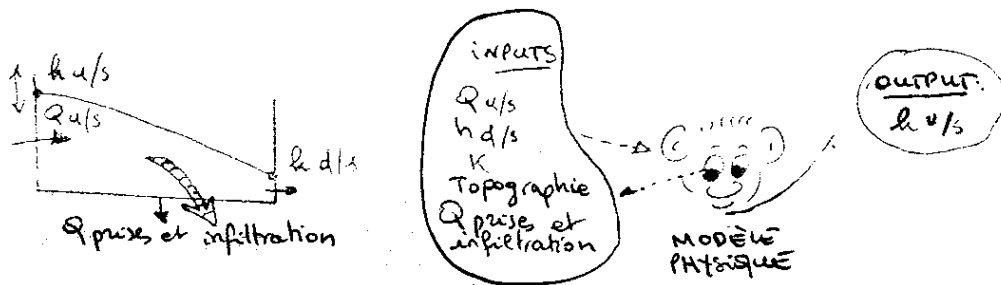 h u/s
Q u/s
h d/s
Q prises et infiltration
INPUTS
Q u/s
h d/s
K
Topographie
Q prises et
infiltration
MODÈLE
PHYSIQUE
OUTPUT:
h u/s